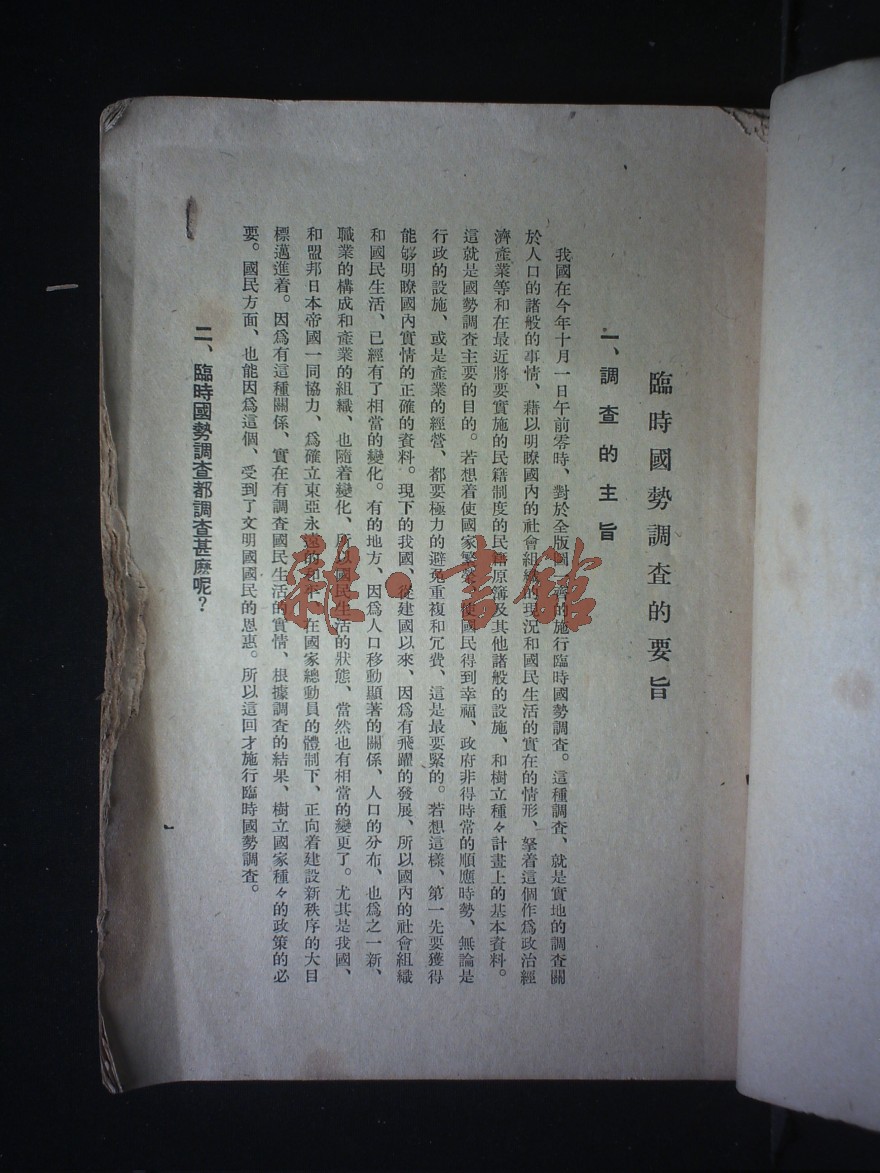 臨時國勢調查的要旨
一、調查的主旨
我國在今年十月一日午前零時、對於全版圖、普的施行臨時國勢調查。這種調查、就是實地的調查關
於人口的諸般的事情、藉以明瞭國內的社會組織的現況和國民生活的實在的情形、拏着這個作爲政治經
濟產業等和在最近將要實施的民籍制度的民籍原簿及其他諸般的設施、和樹立種々計畫上的基本資料。
這就是國勢調查主要的目的。若想着使國家繁榮、使國民得到幸福、政府非得時常的順應時勢、無論是
行政的設施、或是產業的經營、都要極力的避免重複和冗費、這是最要緊的。若想這樣、第一先要獲得
能够明瞭國內實情的正確的資料。現下的我國、從建國以來、因爲有飛躍的發展、所以國內的社會組織
和國民生活、已經有了相當的變化。有的地方、因爲人口移動顯著的關係、人口的分布、也爲之一新、
職業的構成和產業的組織、也隨着變化、所以國民生活的狀態、當然也有相當的變更了。尤其是我國、
和盟邦日本帝國一同協力、爲確立東亞永遠的和平、在國家總動員的體制下、正向着建設新秩序的大目
標邁進着。因爲有這種關係、實在有調查國民生活的實情、根據調查的結果、樹立國家種々的政策的必
要。國民方面、也能因爲這個、受到了文明國國民的恩惠。所以這回才施行臨時國勢調查。
二、臨時國勢調查都調查甚麽呢？
雜·書館